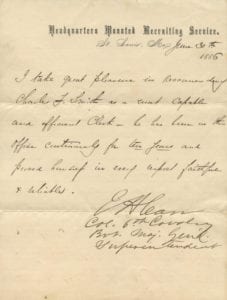 Headquarters Mounted Recruiting Service.
St. Louis, Mo., June 30th
1886
I take great pleasure in recommending
Charles F. Smith as a most capable
and efficient Clerk - he has been in this
office continuously for ten years and
proved himself in every respect faithful
& reliable.
E A Carr
Col. 6th Cavalry
Bvt. Maj. Genl.
Superintendent